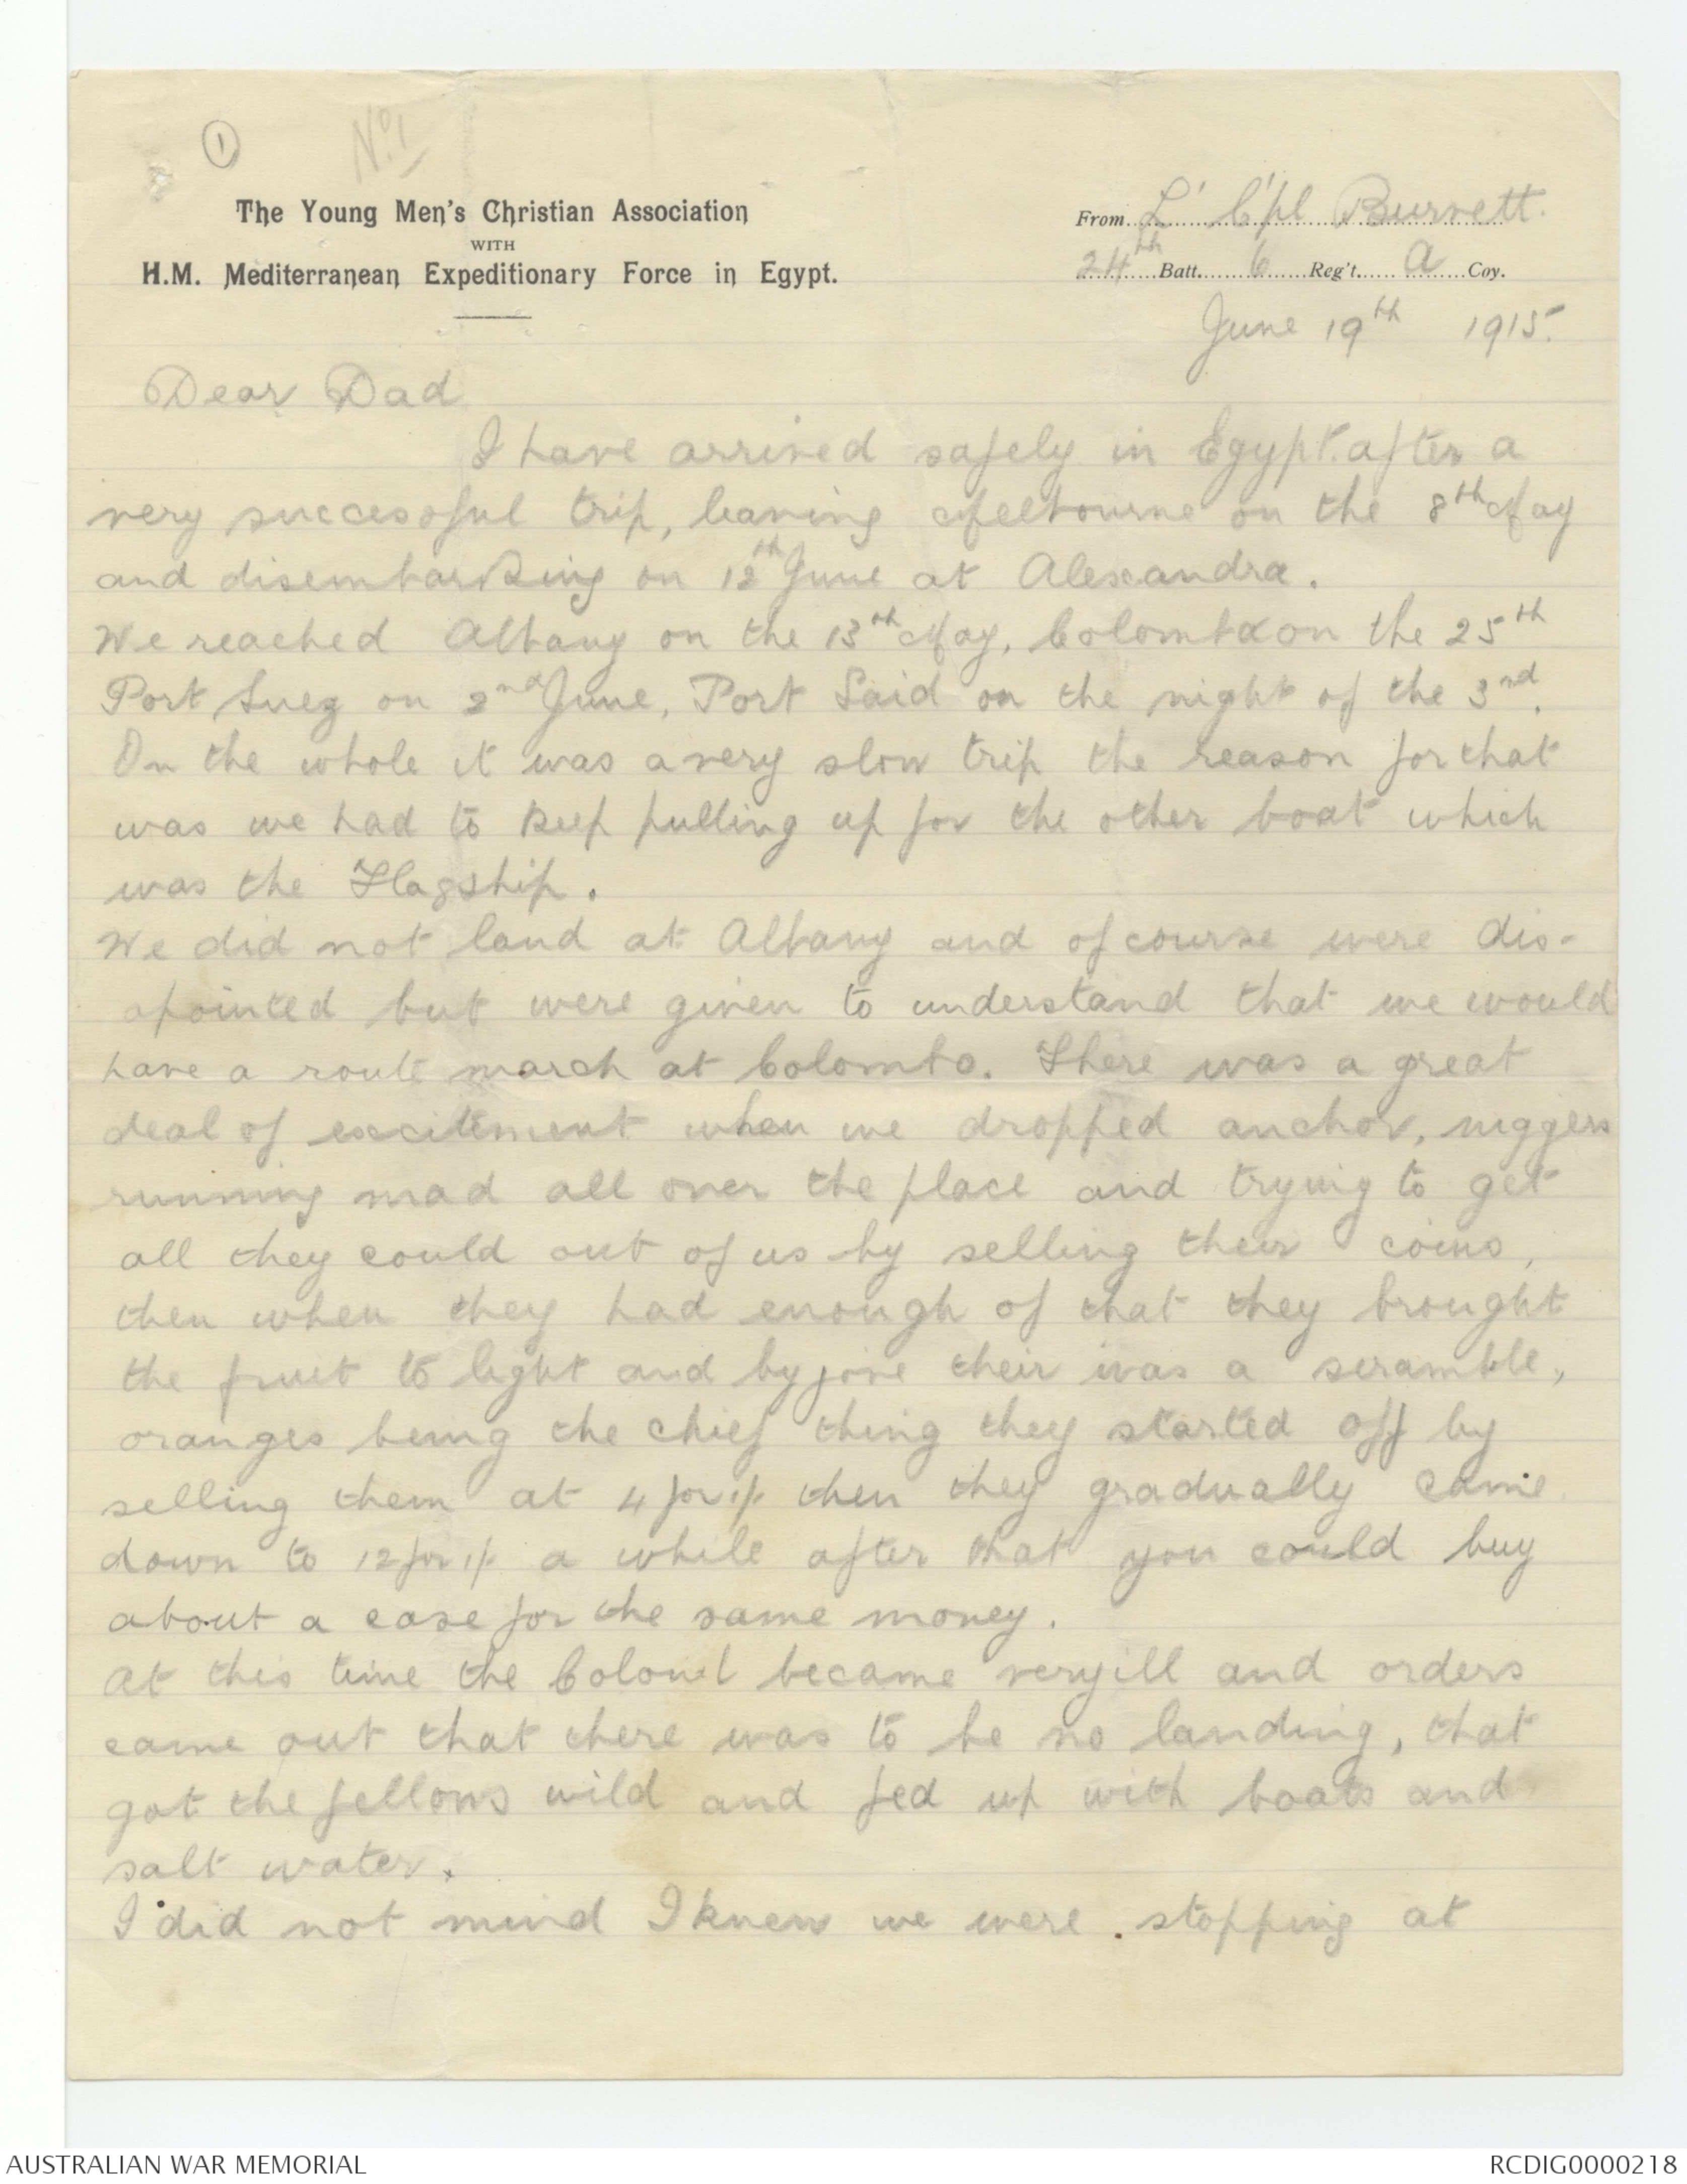 1
No 1
The Young Men's Christian Association
WITH
H.M. Mediterranean Expeditionary Force in Egypt.
From L' C'pl Burrett.
24th Batt. 6 Reg't. A Coy.
June 19th 1915.
Dear Dad
I have arrived safely in Egypt. after a
very successful trip, leaving Melbourne on the 8th May
and disembarking on 12th June at Alexandra.
We reached Albany on the 13th May, Colombo on the 25th
Port Suez on 2nd June, Port Said on the night of the 3nd.
On the whole it was a very slow trip the reason for that
was we had to keep pulling up for the other boat which
was the Flagship.
We did not land at Albany and of course were dis-
apointed but were given to understand that we would
have a route march at Colombo. There was a great
deal of excitement when we dropped anchor, niggers
running mad all over the place and trying to get
all they could out of us by selling their coins,
then when they had enough of that they brought
the fruit to light and by jove their was a scramble,
oranges being the chief thing they started off by
selling them at 4 for 1/- then they gradually came
down to 12 for 1/- a while after that you could buy
about a case for the same money.
At this time the Colonel became very ill and orders
came out that there was to be no landing, that
got the fellows wild and fed up with boats and
salt water.
I did not mind I knew we were stopping at
AUSTRALIAN WAR MEMORIAL
RCDIG0000218